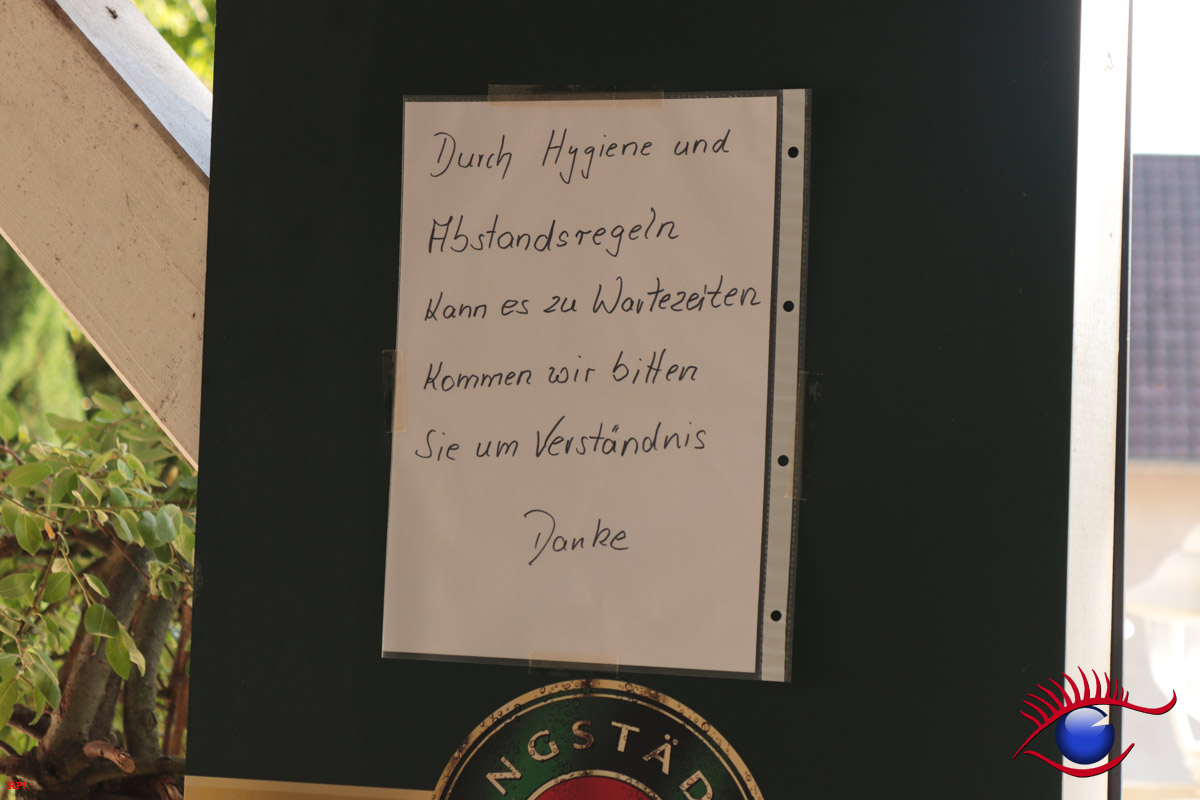 Durch Hygiene und
Abstandsregeln
Kann es zu Wartezeiten
Kommen wir bitten
Sie um Verständnis
Danke
NGSTÄD